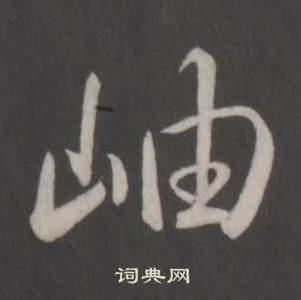 岫
词典网